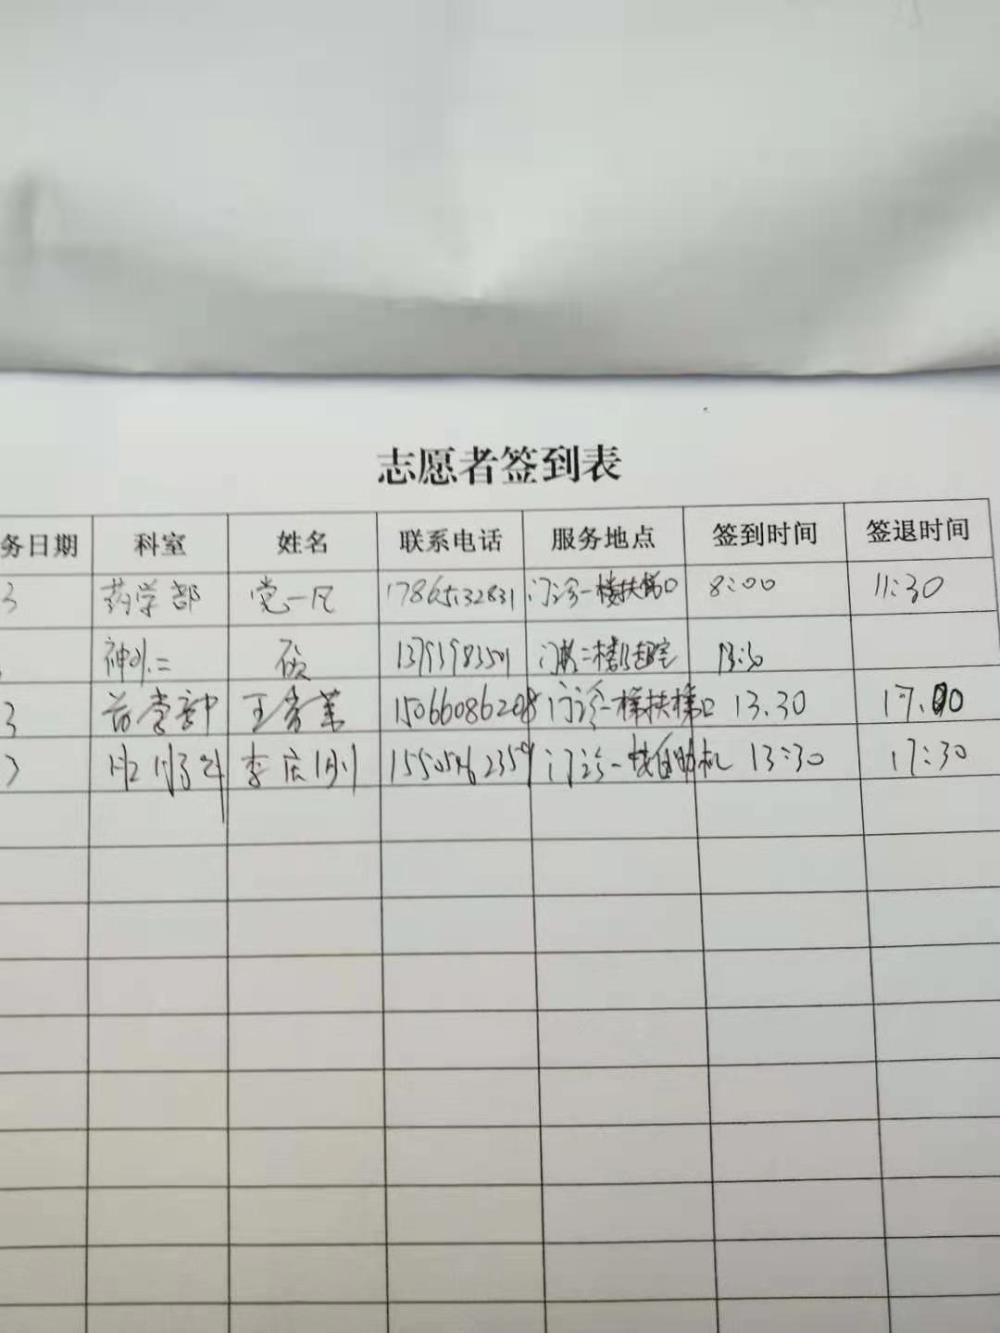 志愿者签到表
务日期 科室 姓名 联系电话 服务地点 签到时间 签退时间
3 药学部 党一凡 17865132831 门诊一楼扶梯口 8:00 11:30
神外二 13793983501 13:30
3 营 王 15066086208 门诊一楼扶梯口 13.30 17.00
3 李庆刚 门诊一楼自助机 13:30 17:30